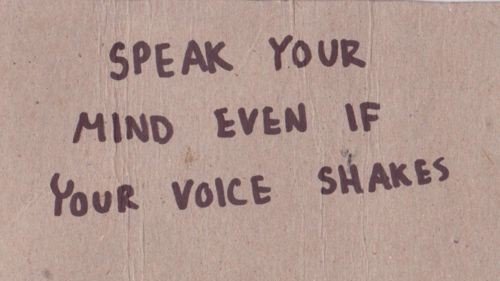 SPEAK YOUR
MIND EVEN IF
YOUR VOICE SHAKES